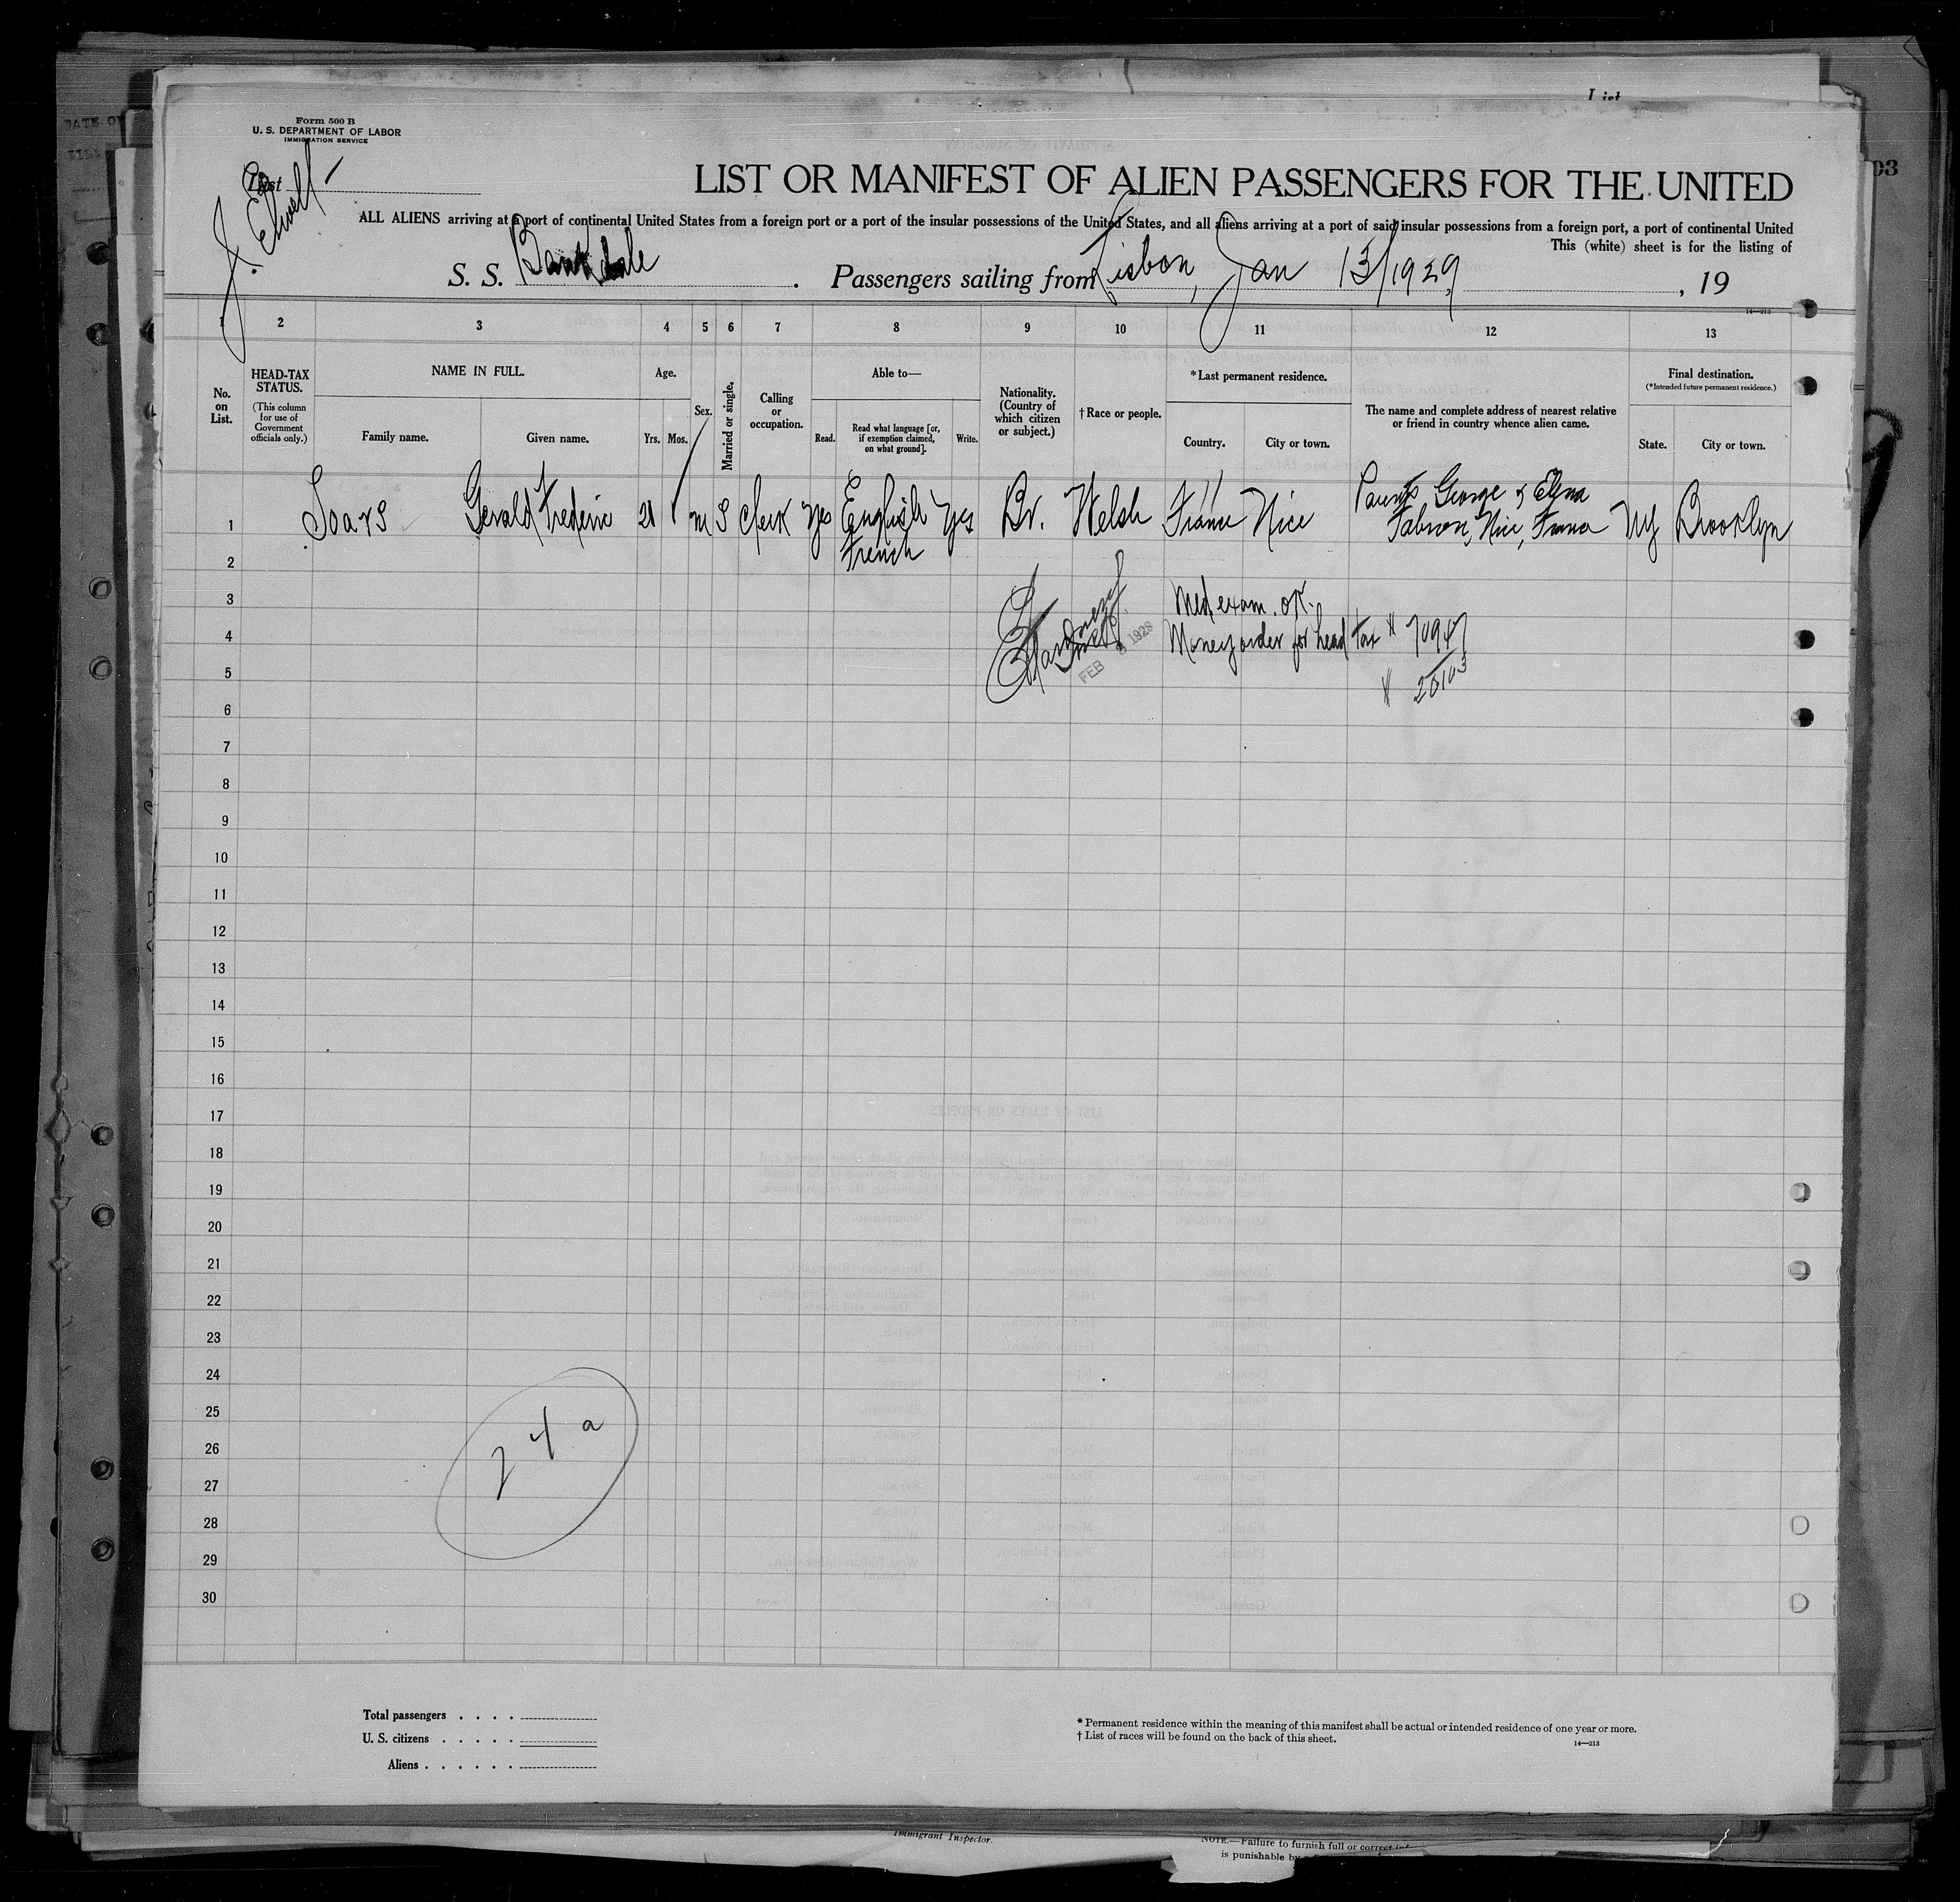 List
DATE OF
03
Form 500 B
U. S. DEPARTMENT OF LABOR
IMMIGRATION SERVICE
List
J. Elwell
LIST OR MANIFEST OF ALIEN PASSENGERS FOR THE UNITED
ALL ALIENS arriving at a port of continental United States from a foreign port or a port of the insular possessions of the United States, and all aliens arriving at a port of said insular possessions from a foreign port, a port of continental United
This (white) sheet is for the listing of
S. S. . Passengers sailing from Lisbon, Jan 13/1929, 19
14—213
1 2 3 4 5 6 7 8 9 10 11 12 13
No. on List.
HEAD-TAX STATUS.
(This column for use of Government officials only.)
NAME IN FULL.
Family name. Given name.
Age.
Yrs. Mos.
Sex.
Married or single.
Calling or occupation.
Able to—
Read. Read what language [or, if exemption claimed, on what ground]. Write.
Nationality. (Country of which citizen or subject.)
† Race or people.
* Last permanent residence.
Country. City or town.
The name and complete address of nearest relative or friend in country whence alien came.
Final destination.
(*Intended future permanent residence.)
State. City or town.
1 Soars Gerald Frederic 21 m S Clerk yes English yes Br. Welsh France Nice Parents George & Elena
Fabron, Nice, France NY Brooklyn
2 French
3 Med exam. OK.
4 Money order for head tax # 70947
FEB 1929
5 # 25103
6
7
8
9
10
11
12
13
14
15
16
17
18
19
20
21
22
23
24
25
24 a
26
27
28
29
30
Total passengers . . . .
U. S. citizens . . . . .
Aliens . . . . . .
* Permanent residence within the meaning of this manifest shall be actual or intended residence of one year or more.
† List of races will be found on the back of this sheet.
14—213
Immigrant Inspector.
NOTE.—Failure to furnish full or correct
is punishable by